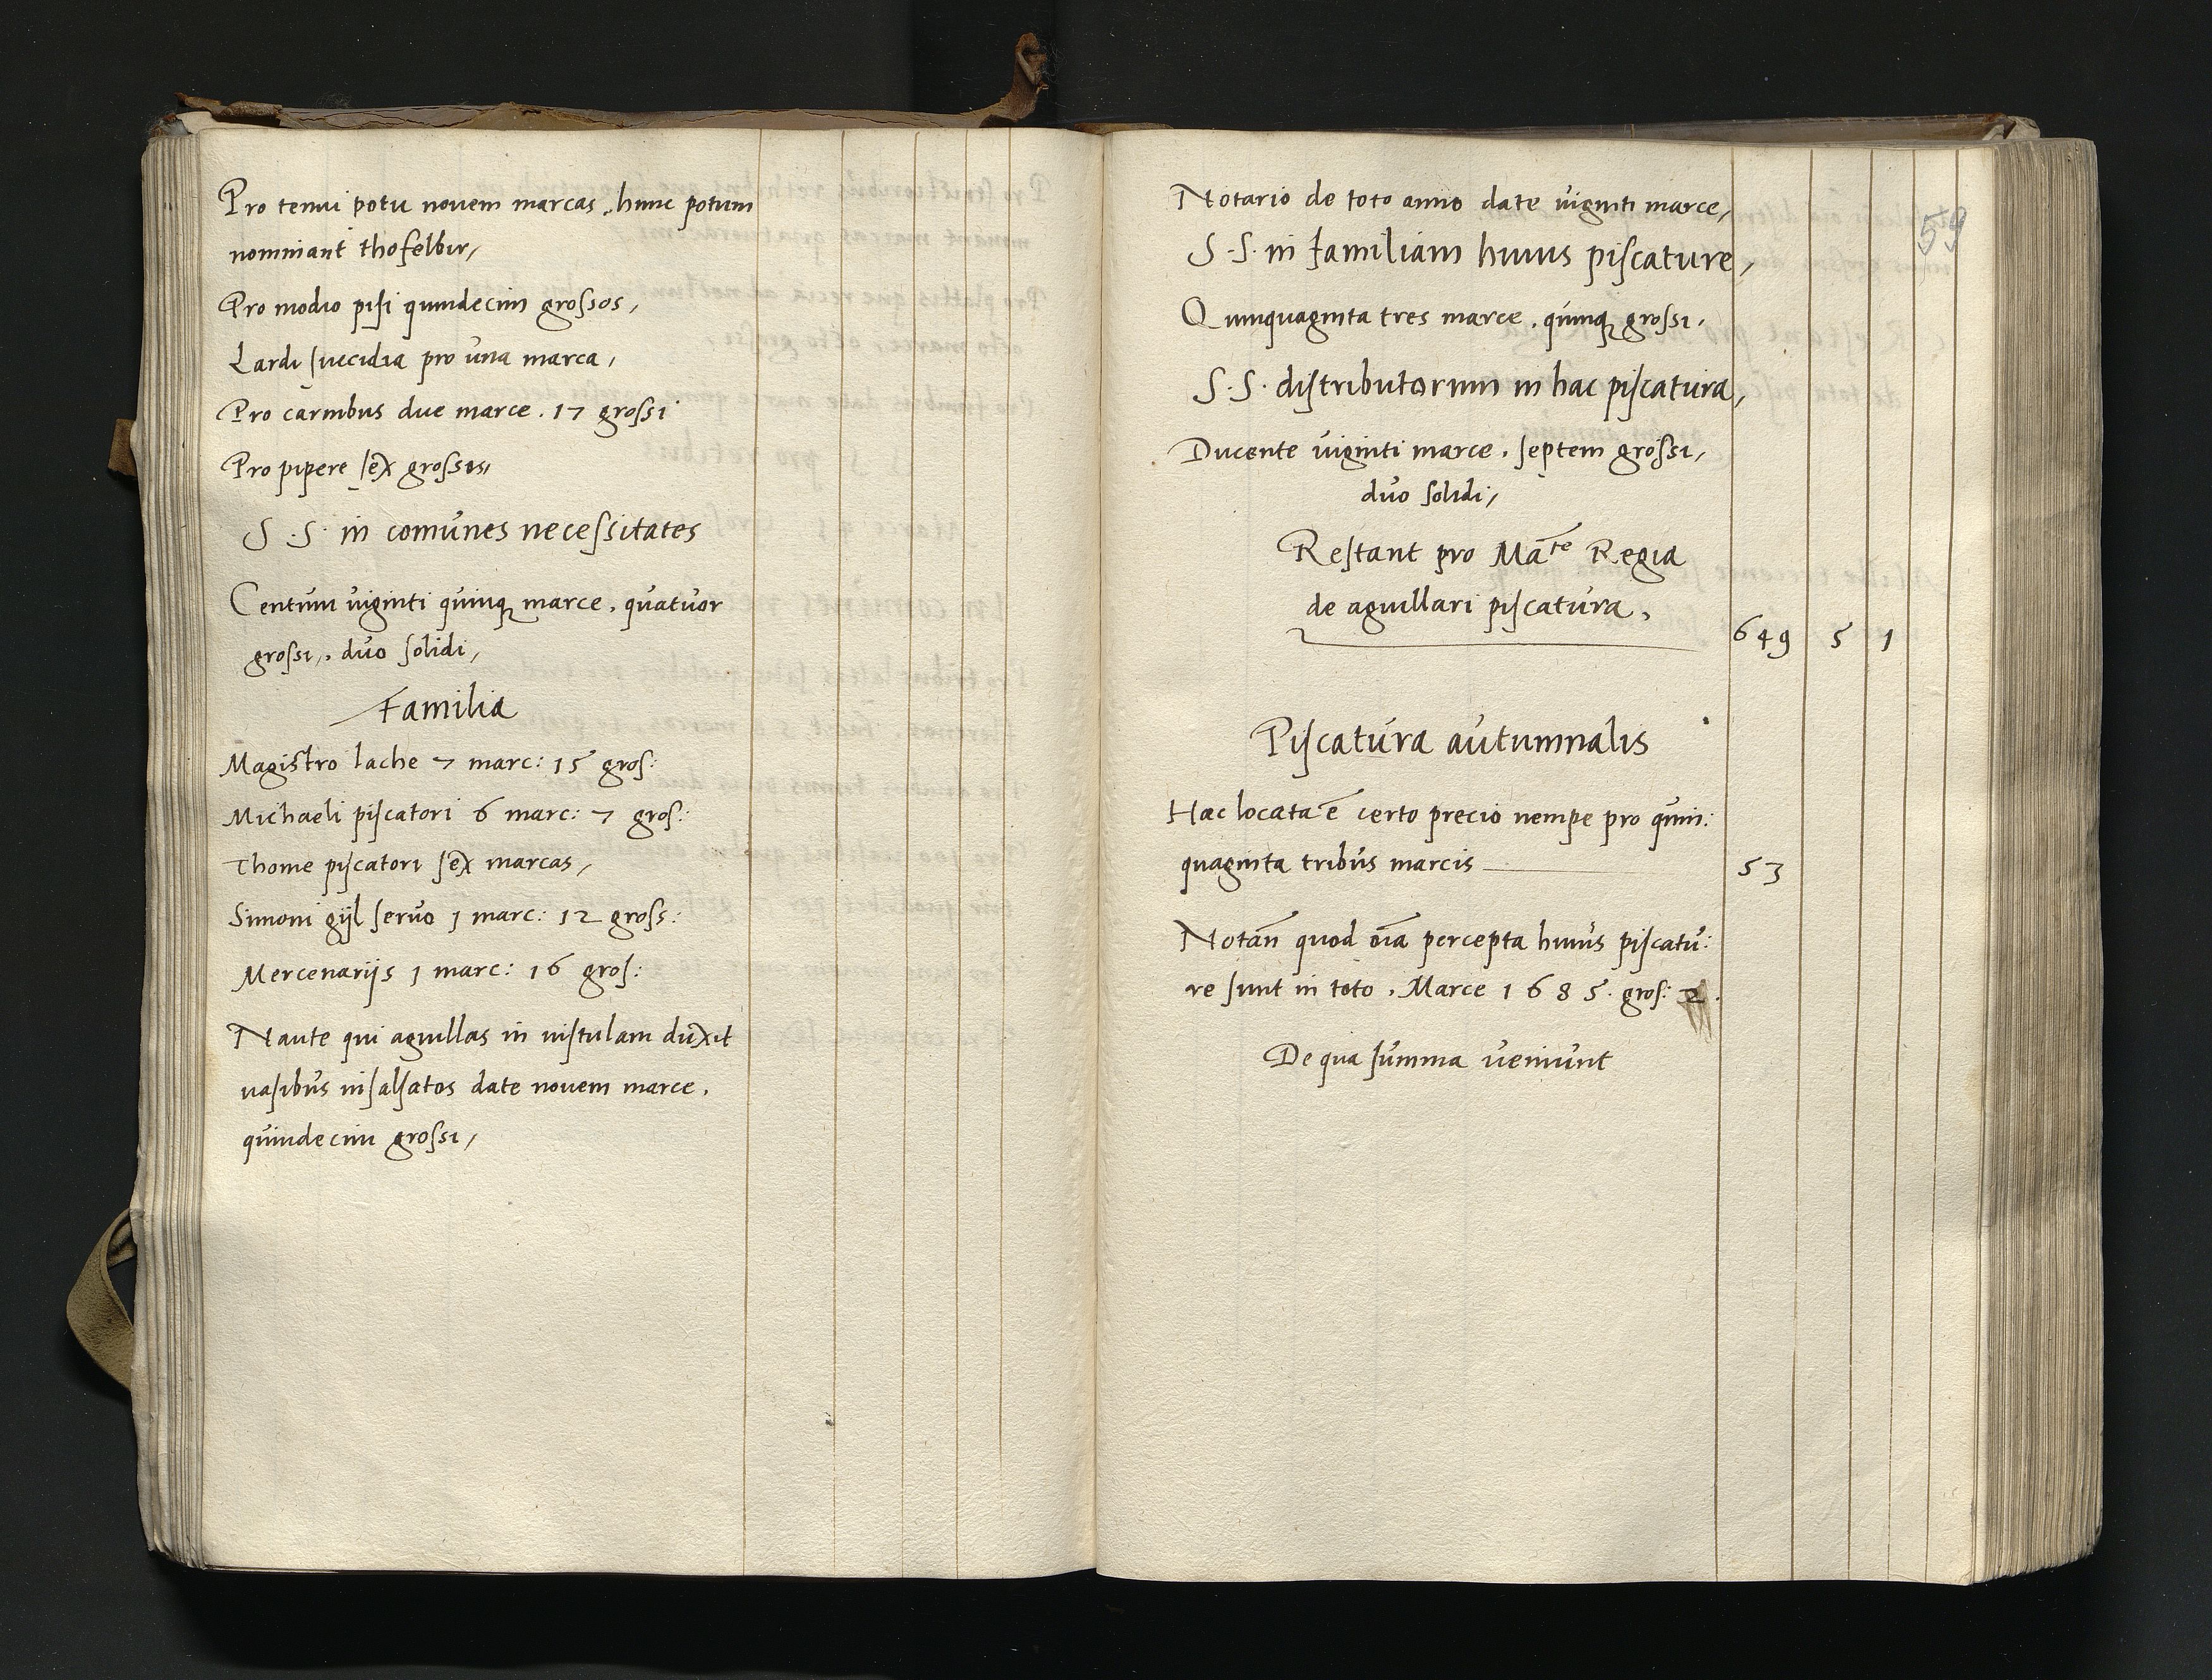 Pro tenui potu nouem marcas, hunc potum
nominant thofelbir,
Pro modio pisi quindecim grossos,
Lardi succidia pro una marca,
Pro carnibus due marce. 17 grossi
Pro pipere sex grossis,
S. S. in comunes necessitates
Centum uiginti quinq marce, quatuor
grossi, duo solidi,
Familia
Magistro lache 7 marc: 15 gros:
Michaeli piscatori 6 marc: 7 gros:
Thome piscatori sex marcas,
Simoni gijl seruo 1 marc: 12 gross:
Mercenarijs 1 marc: 16 gros:
Naute qui aguillas in uistulam duxit
uasibus insalsatos date nouem marce.
quindecim grossi,
59
Notario de toto anno date uiginti marce,
S. S. in familiam huius piscature,
Quinquaginta tres marce, quinq grossi,
S. S. distributorum in hac piscatura,
Ducente uiginti marce, septem grossi,
duo solidi,
Restant pro Ma^te Regia
de aguillari piscatura,
649 5 1
Piscatura autumnalis
Hac locata ē certo precio nempe pro quin:
quaginta tribus marcis 53
Notan̄ quod oīa percepta huius piscatu:
re sunt in toto, Marce 1685. gros: 2.
De qua summa ueniunt